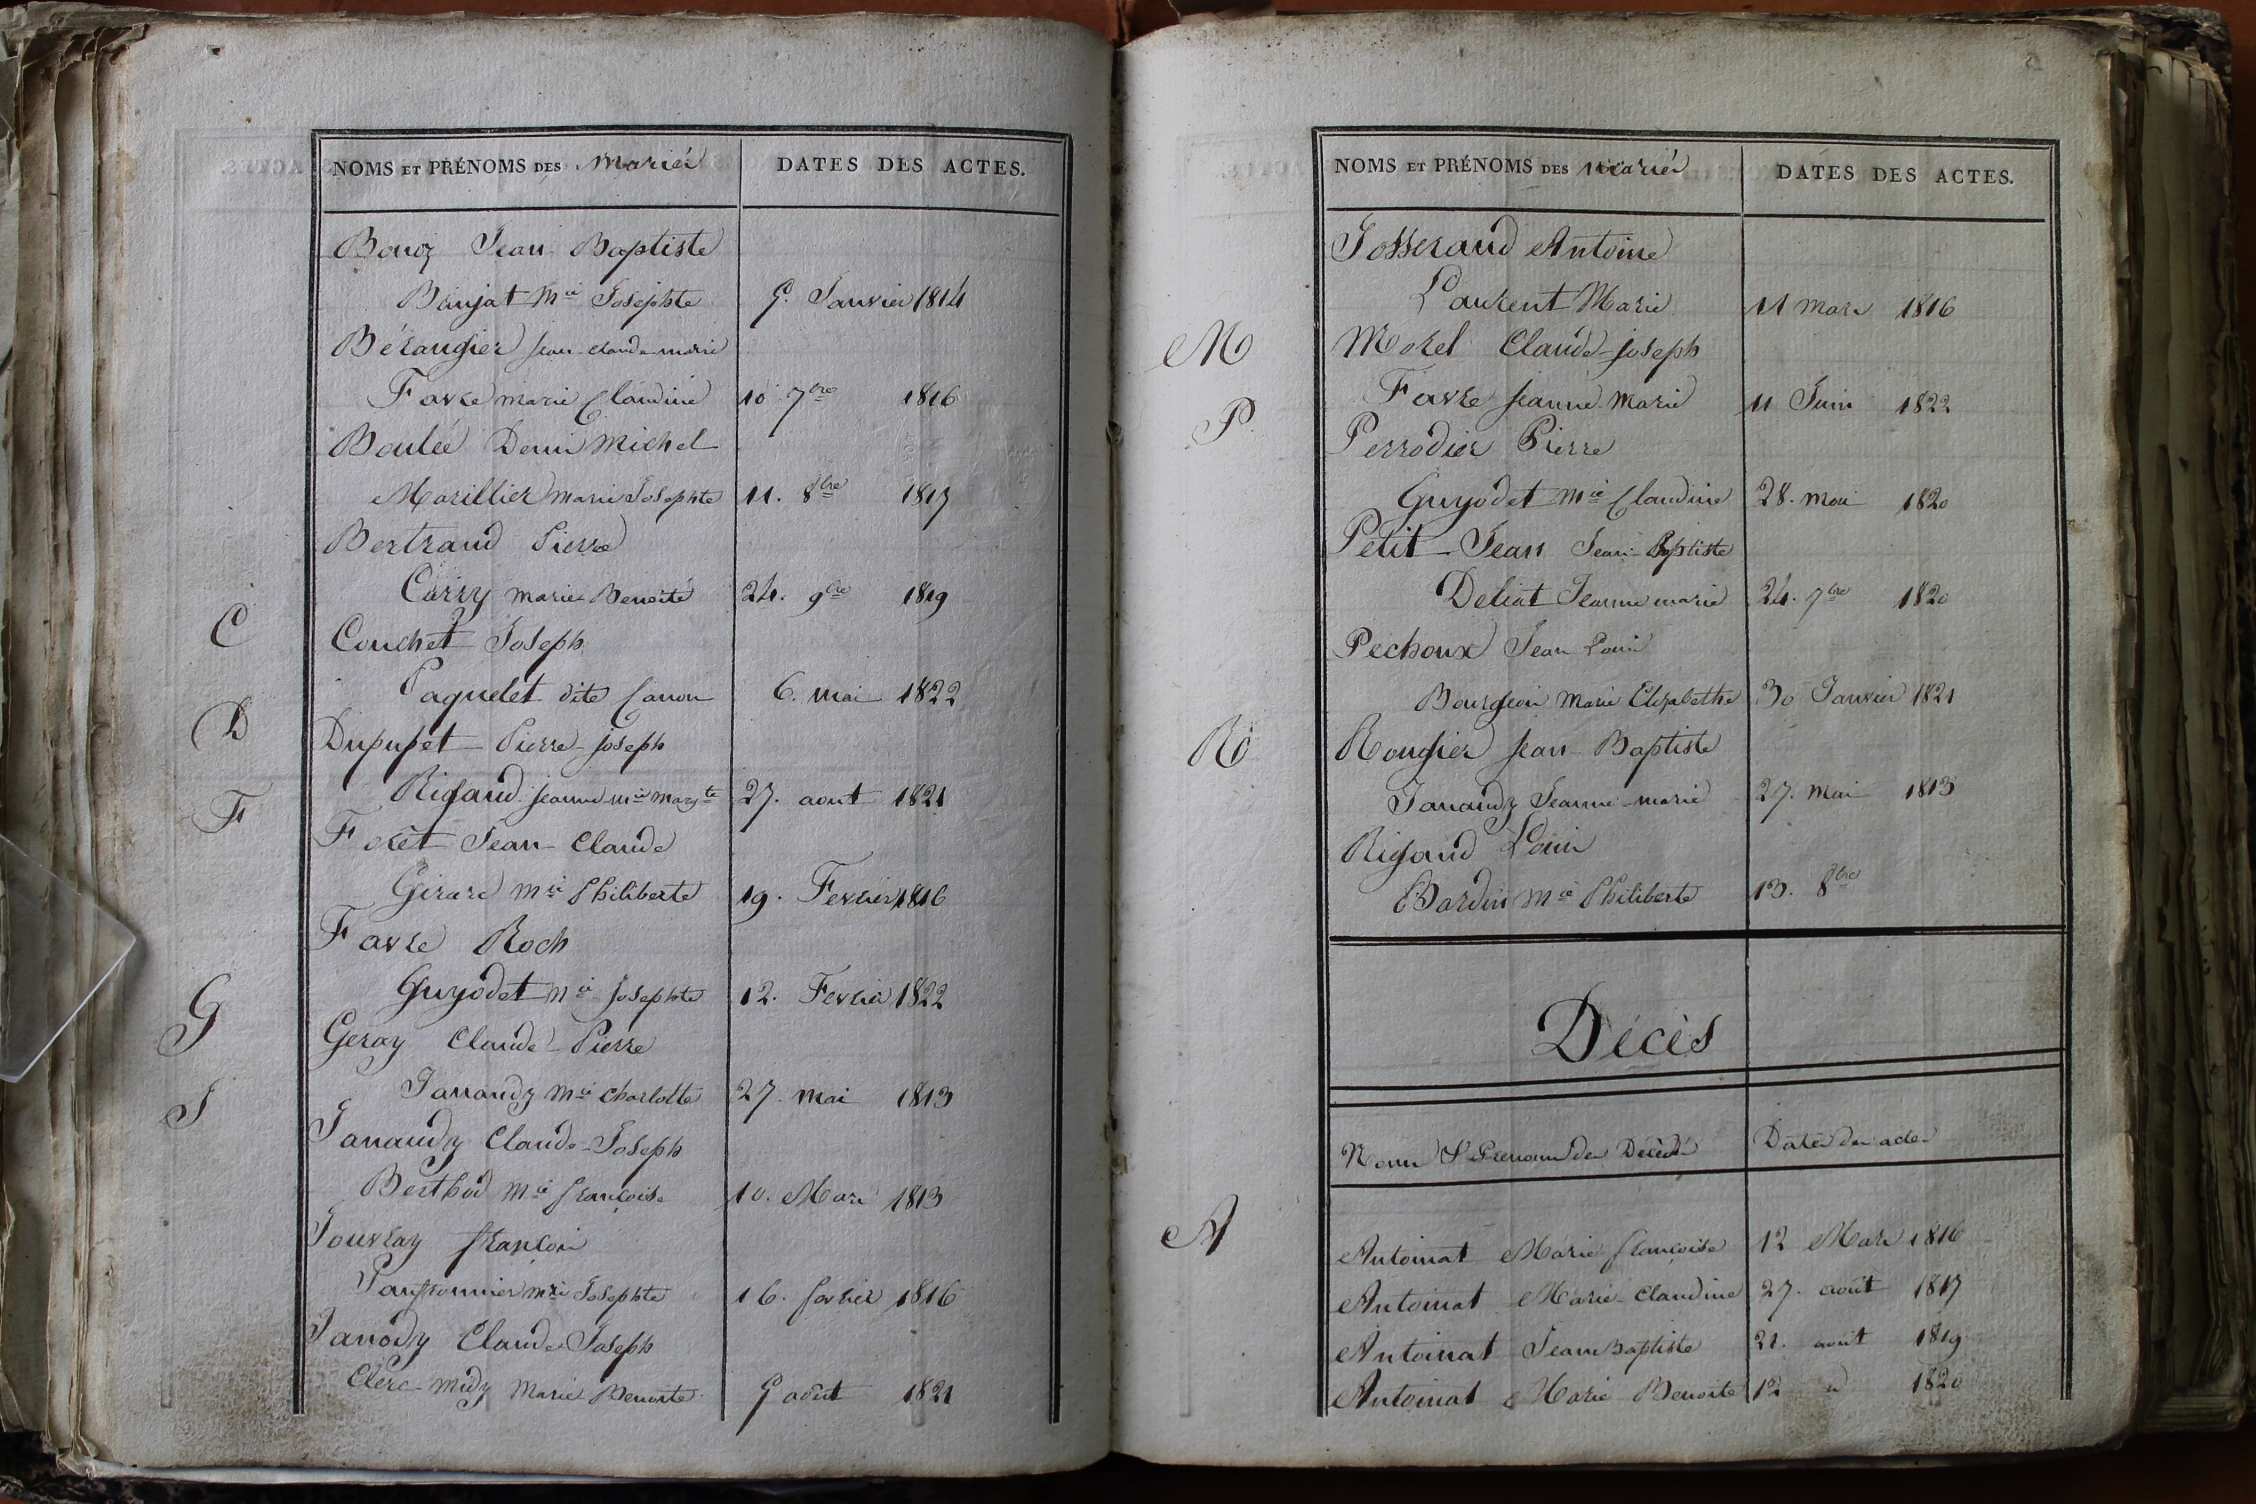 NOMS ET PRÉNOMS DES Mariés DATES DES ACTES.
Bouoz Jean Baptiste
Banjat Mie Josephte 9. Janvier 1814
Bérangier Jean claude marie
Favre marie Claudine 10 7bre 1816
Boulée Denis Michel
Marillier marie Josephte 11. 8bre 1817
Bertrand Pierre
Carry marie Benoite 24. 9bre 1819
C
Couchet Joseph
Paquelet dite Canon 6. mai 1822
D
Dupupet Pierre joseph
Rigaud jeanne mie margte 27. aout 1821
F
Foret Jean Claude
Girard Mie Philiberte 19. Fevrier 1816
Favre Roch
Guyodet Mie Josephte 12. Fevrier 1822
G
Geray Claude Pierre
Janaudy Mie Charlotte 27. mai 1813
J
Janaudy Claude Joseph
Berthod Mie françoise 10. Mars 1813
Jouvray françois
Pansionnier mrie Josephte 16. fevrier 1816
Janody Claude Joseph
Clerc midy Marie Benoite 9 août 1821
NOMS ET PRÉNOMS DES mariés DATES DES ACTES.
Josserand Antoine
Laurent Marie 11 mars 1816
M
Morel Claude joseph
Favre jeanne Marie 11 Juin 1822
P.
Perrodier Pierre
Guyodet Mie Claudine 28. mai 1820
Petit Jean Jean Baptiste
Deliat Jeanne marie 24. 7bre 1820
Pechoux Jean Louis
Bourgeois Marie Elizabethe 30 Janvier 1821
R
Rougier jean Baptiste
Janaudy Jeanne marie 27. mai 1813
Rigaud Louis
Bardin Mie Philiberte 13. 8bre
Décès
Noms & Prenoms des Décédés Dates des actes
A
Antoinat Marie françoise 12 Mars 1816
Antoinat Marie Claudine 27. août 1817
Antoinat Jean Baptiste 21. août 1819
Antoinat Marie Benoite 12 " 1820